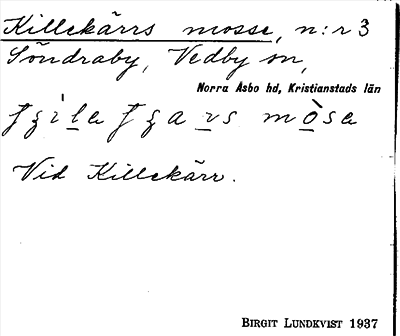 Killekärrs mosse, n:r 3
Söndraby, Vedby sn,
Norra Åsbo hd, Kristianstads län
mòsa
Vid Killekärr.
BIRGIT LUNDKVIST 1937